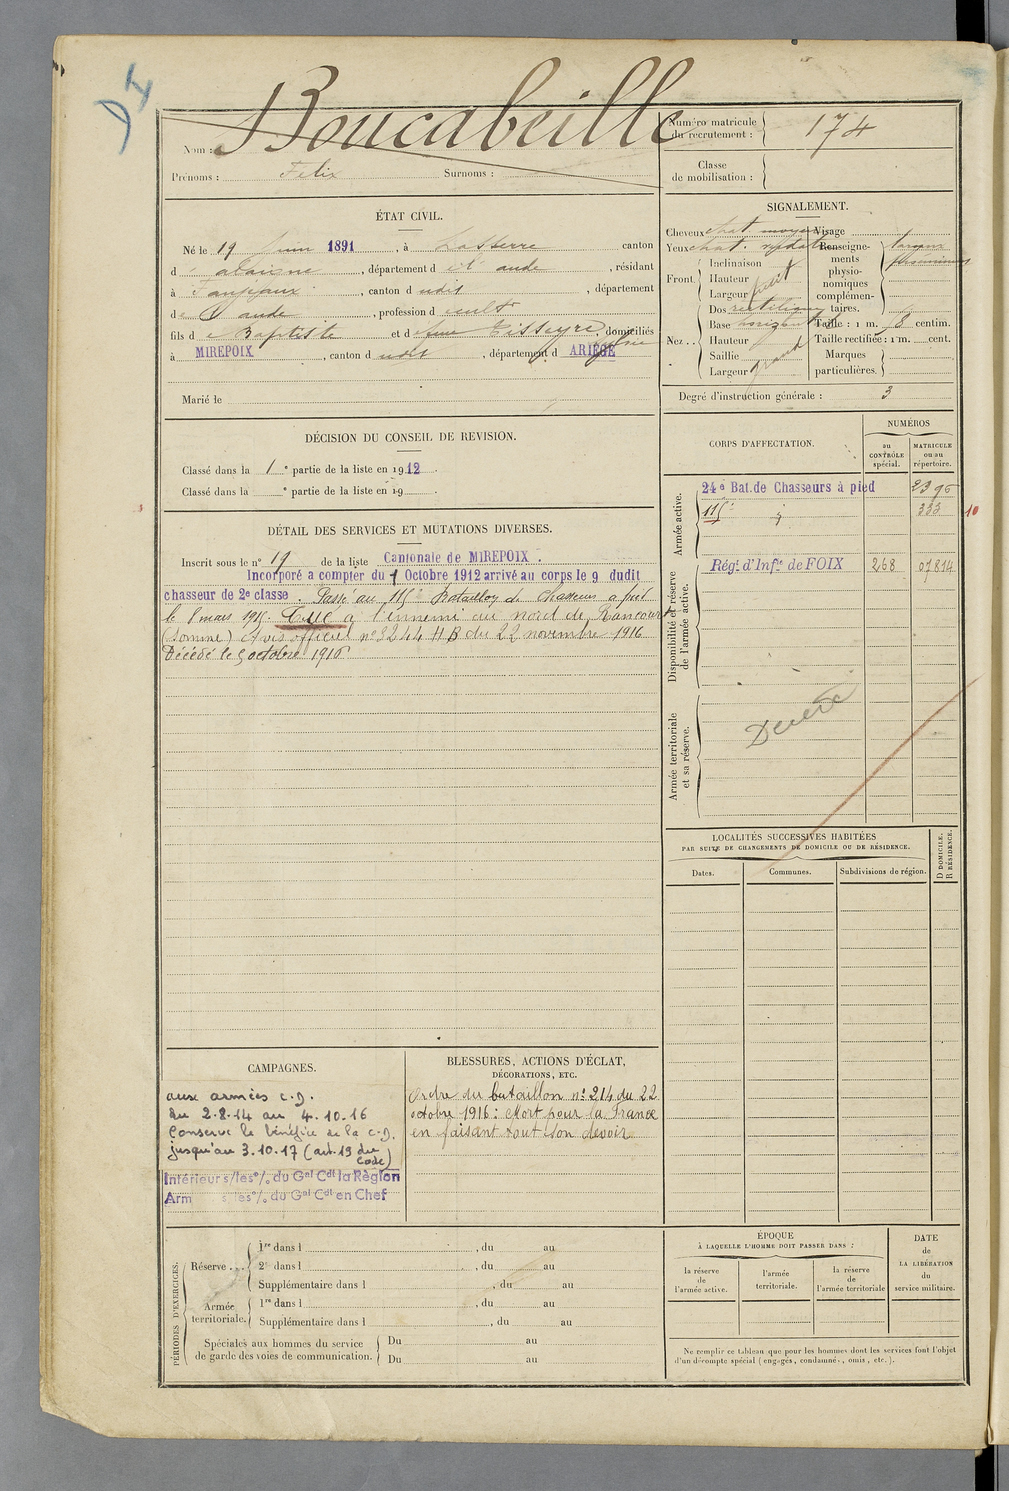 D4
Nom : Boucabeille
Prénoms : Felix Surnoms :
Numéro matricule du recrutement : 174
Classe de mobilisation :
ÉTAT CIVIL.
Né le 19 Juin 1891, à Lasserre canton
d' alaigne, département d e l' aude, résidant
à Fanjeaux, canton d udit, département
de l' aude, profession d cult
fils de Baptiste et de feue Tisseyre, domiciliés
à MIREPOIX, canton d udit, département d ARIÈGE
Marié le
SIGNALEMENT.
Cheveux chat moyen Visage
Yeux chat.
Renseignements physionomiques complémentaires.
Front Inclinaison
Hauteur
Largeur petit
Nez Dos rectiligne
Base horizontal Taille : 1 m. 8 centim.
Hauteur Taille rectifiée : 1 m. cent.
Saillie Marques
Largeur grand particulières.
Degré d'instruction générale : 3
DÉCISION DU CONSEIL DE REVISION.
Classé dans la 1e partie de la liste en 1912.
Classé dans la e partie de la liste en 19
CORPS D'AFFECTATION.
NUMÉROS
au CONTRÔLE spécial.
MATRICULE ou au répertoire.
Armée active.
24e Bat. de Chasseurs à pied 2396
115e 333 10
Disponibilité et réserve de l'armée active.
Rég.t d'Inf.ie de FOIX 268 07814
Armée territoriale et sa réserve.
Décédé
DÉTAIL DES SERVICES ET MUTATIONS DIVERSES.
Inscrit sous le n° 19 de la liste Cantonale de MIREPOIX.
Incorporé a compter du 1 Octobre 1912 arrivé au corps le 9 dudit
chasseur de 2e classe. Passé au 115e Bataillon de chasseurs a pied
le 8 mars 1915. Tué a l'ennemi au nord de Rancourt
(Somme) Avis officiel n° 3244 HB du 22 novembre 1916
Décédé le 5 octobre 1916
LOCALITÉS SUCCESSIVES HABITÉES
PAR SUITE DE CHANGEMENTS DE DOMICILE OU DE RÉSIDENCE.
Dates. Communes. Subdivisions de région. D DOMICILE. R RÉSIDENCE.
CAMPAGNES.
aux armées c.d.
du 2.8.14 au 4.10.16
Conserve le bénéfice de la c.d.
jusqu'au 3.10.17 (art. 19 du
Code)
Intérieur s/les o/o du Gal Cdt la Région
Arm s/les o/o du Gal Cdt en Chef
BLESSURES, ACTIONS D'ÉCLAT,
DÉCORATIONS, ETC.
Ordre du bataillon n° 214 du 22
octobre 1916 : Mort pour la France
en faisant tout son devoir
PÉRIODES D'EXERCICES.
Réserve... 1re dans l , du au
2e dans l , du au
Supplémentaire dans l , du au
Armée territoriale. 1re dans l , du au
Supplémentaire dans l , du au
Spéciales aux hommes du service de garde des voies de communication. Du au
Du au
ÉPOQUE
À LAQUELLE L'HOMME DOIT PASSER DANS :
la réserve de l'armée active.
l'armée territoriale.
la réserve de l'armée territoriale
DATE de LA LIBÉRATION du service militaire.
Ne remplir ce tableau que pour les hommes dont les services font l'objet
d'un décompte spécial (engagés, condamnés, omis, etc.).